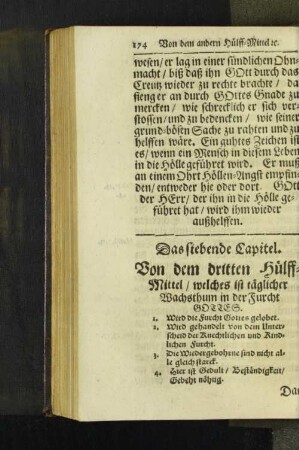 174 Von dem andern Hülff-Mittel ꝛc.
wesen/ er lag in einer sündlichen Ohn-
macht/ biß daß ihn GOtt durch das
Creutz wieder zu rechte brachte/ da
fieng er an durch GOttes Gnade zu
mercken/ wie schrecklich er sich ver-
stossen/ und zu bedencken/ wie seiner
grund-bösen Sache zu rahten und zu
helffen wäre. Ein guhtes Zeichen ist
es/ wenn ein Mensch in diesem Leben
in die Hölle geführet wird. Er muß
an einem Ohrt Höllen-Angst empfin-
den/ entweder hie oder dort. GOtt
der HErr/ der ihn in die Hölle ge-
führet hat/ wird ihm wieder
außhelffen.
Das siebende Capitel.
Von dem dritten Hülff-
Mittel/ welches ist täglicher
Wachsthum in der Furcht
GOTTES.
1. Wird die Furcht Gottes gelobet.
2. Wird gehandelt von dem Unter-
scheid der Knechtlichen und Kind-
lichen Furcht.
3. Die Wiedergebohrne sind nicht al-
le gleich starck.
4. Hier ist Gedult/ Beständigkeit/
Gebeht nöhtig.